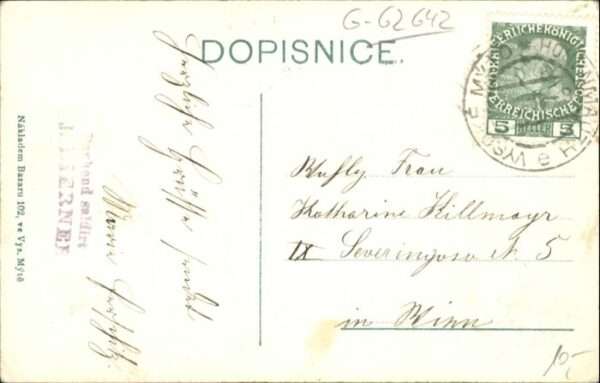 G-62642
DOPISNICE.
KAISERLICHE KÖNIGLICHE
ÖSTERREICHISCHE POST
5 HELLER 5
HOHENMAUTH
VYSOKÉ MÝTO
Herzliche Grüße sendet
Marie
Wohlg Frau
Katharine Hillmayr
IX Severingasse N. 5
in Wien
Nákladem Bazaru 102, ve Vys. Mýtě
10,-